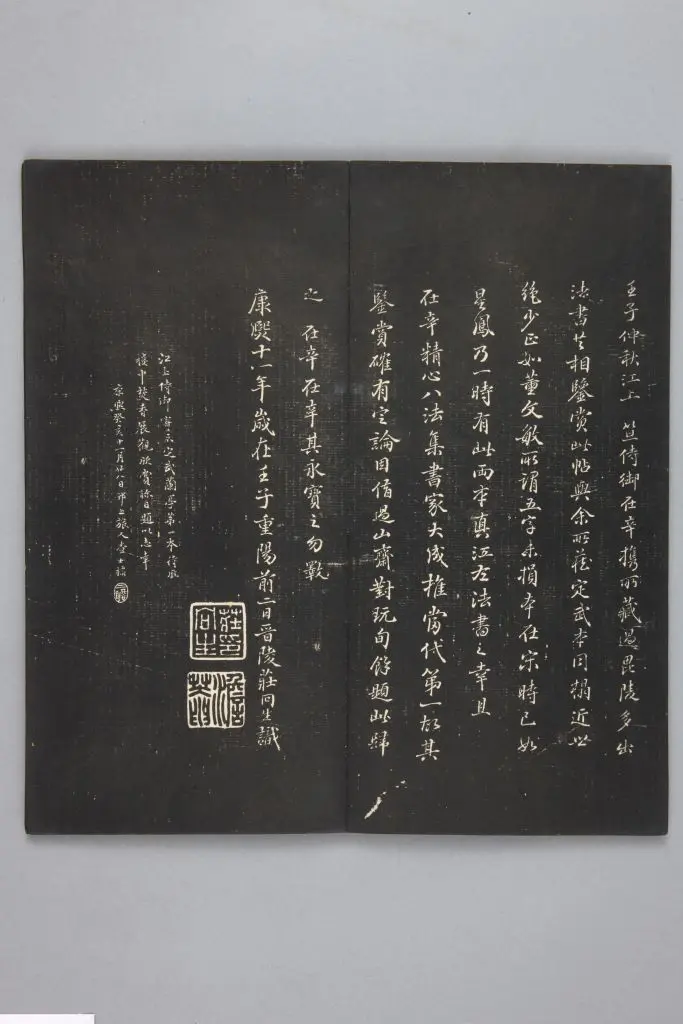 壬子仲秋江上 笪侍御在辛携所藏過毘陵多出
法書共相鑒賞此帖與余所藏定武本同搨近世
絶少正如董文敏所謂五字未損本在宋時已如
星鳳乃一時有此兩本真江左法書之幸且
在辛精心八法集書家大成推當代第一故其
鑒賞確有定論因借過山齋對玩旬餘題此歸
之 在辛在辛其永寶之勿斁
康熙十一年歲在壬子重陽前二日晉陵莊冋生識
莊冋生印
江上侍御寄示定武蘭亭第一本
康熙癸亥十月廿八日